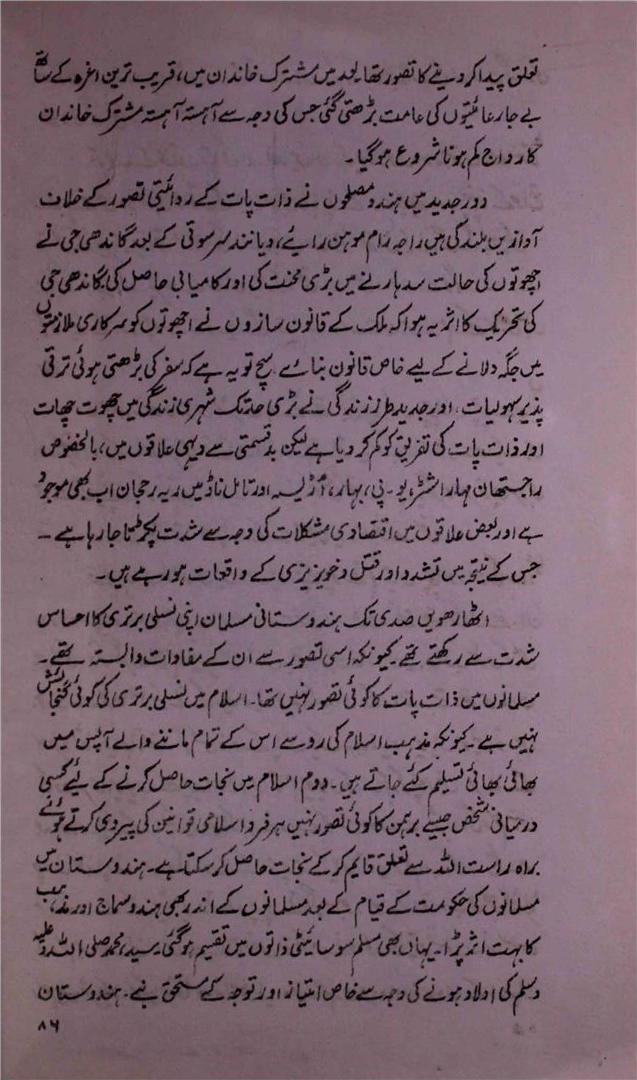 تعلق پیدا کر دینے کا تصور تھا بعد میں مشترک خاندان میں، قریب ترین اعزہ کے ساتھ
بے جا رعائیتوں کی عامت بڑھتی گئی جس کی وجہ سے آہستہ آہستہ مشترک خاندان
کا رواج کم ہونا شروع ہو گیا۔
دور جدید میں ہندو مصلحوں نے ذات پات کے روائیتی تصور کے خلاف
آوازیں بلند کی ہیں راجہ رام موہن رائے، دیانند سرسوتی کے بعد گاندھی جی نے
اچھوتوں کی حالت سدہارنے میں بڑی محنت کی اور کامیابی حاصل کی۔ گاندھی جی
کی تحریک کا اثر یہ ہوا کہ ملک کے قانون سازوں نے اچھوتوں کو سرکاری ملازمتوں
میں جگہ دلانے کے لیے خاص قانون بنائے۔ سچ تو یہ ہے کہ سفر کی بڑھتی ہوئی ترقی
پذیر سہولیات، اور جدید طرز زندگی نے بڑی حد تک شہری زندگی میں چھوت چھات
اور ذات پات کی تفریق کو کم کر دیا ہے لیکن بدقسمتی سے دیہی علاقوں میں، بالخصوص
راجستھان مہاراشٹر، یو۔ پی، بہار، اڑیسہ اور تامل ناڈ میں یہ رجحان اب بھی موجود
ہے اور بعض علاقوں میں اقتصادی مشکلات کی وجہ سے شدت پکڑتا جا رہا ہے۔
جس کے نتیجہ میں تشدد اور قتل و خوںریزی کے واقعات ہو رہے ہیں۔
اٹھارھویں صدی تک ہندوستانی مسلمان اپنی نسلی برتری کا احساس
شدت سے رکھتے تھے۔ کیونکہ اسی تصور سے ان کے مفادات وابستہ تھے۔
مسلمانوں میں ذات پات کا کوئی تصور نہیں تھا۔ اسلام میں نسلی برتری کی کوئی گنجائش
نہیں ہے۔ کیونکہ مذہب اسلام کی رو سے اس کے تمام ماننے والے آپس میں
بھائی بھائی تسلیم کئے جاتے ہیں۔ دوم اسلام میں نجات حاصل کرنے کے لئے کسی
درمیانی شخص جیسے برہمن کا کوئی تصور نہیں ہر فرد اسلامی قوانین کی پیروی کرتے ہوئے
براہ راست اللہ سے تعلق قایم کر کے نجات حاصل کر سکتا ہے۔ ہندوستان میں
مسلمانوں کی حکومت کے قیام کے بعد مسلمانوں کے اندر بھی ہندو سماج اور مذہب
کا بہت اثر پڑا۔ یہاں بھی مسلم سوسائیٹی ذاتوں میں تقسیم ہو گئی۔ سید، محمد صلی اللہ علیہ
وسلم کی اولاد ہونے کی وجہ سے خاص امتیاز اور توجہ کے مستحق بنے۔ ہندوستان
۸۶